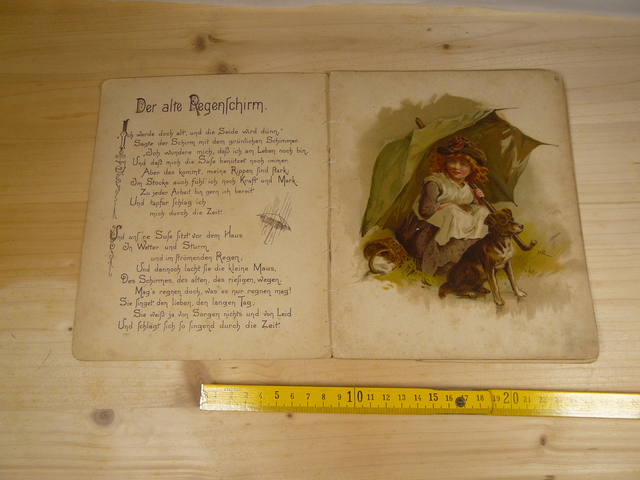 Der alte Regenſchirm.
„Ich werde doch alt, und die Seide wird dünn,"
Sagte der Schirm mit dem grünlichen Schimmer.
„Ich wundere mich, daß ich am Leben noch bin,
Und daß mich die Suſe benützet noch immer.
Aber das kommt, meine Rippen ſind ſtark,
Im Stocke auch fühl' ich noch Kraft und Mark,
Zu jeder Arbeit bin gern ich bereit
Und tapfer ſchlag ich
mich durch die Zeit."
Und unſ're Suſe ſitzt vor dem Haus
In Wetter und Sturm
und im ſtrömenden Regen,
Und dennoch lacht ſie die kleine Maus,
Des Schirmes, des alten, des rieſigen, wegen.
Mag's regnen doch, was es nur regnen mag!
Sie ſinget den lieben, den langen Tag,
Sie weiß ja von Sorgen nichts und von Leid
Und ſchlägt ſich ſo ſingend durch die Zeit.
4 5 6 7 8 9 10 11 12 13 14 15 16 17 18 19 20 21